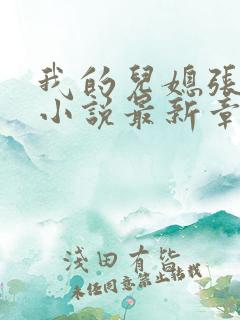 我的兒媳張
小說最新章
淺田有皆
未经同意禁止转载